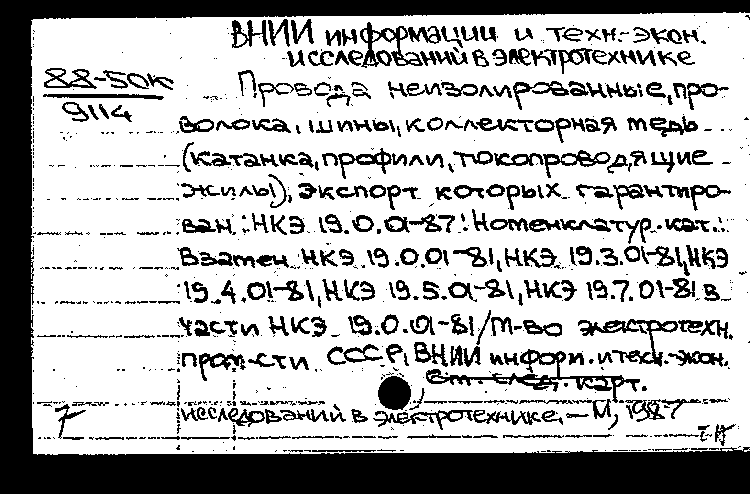 ВНИИ информации и техн.-экон.
исследований в электротехнике
88-50к
9114
Провода неизолированные, про-
волока, шины, коллекторная медь
(катанка, профили, токопроводящие
жилы), экспорт которых гарантиро-
ван: НКЭ 19.0.01-87: Номенклатур. кат.:
Взамен НКЭ 19.0.01-81, НКЭ 19.3.01-81, НКЭ
19.4.01-81, НКЭ 19.5.01-81, НКЭ 19.7.01-81 в
части НКЭ 19.0.01-81/М-во электротехн.
пром-сти СССР, ВНИИ информ. и техн.-экон.
См. след. карт.
исследований в электротехнике. — М, 1987
7